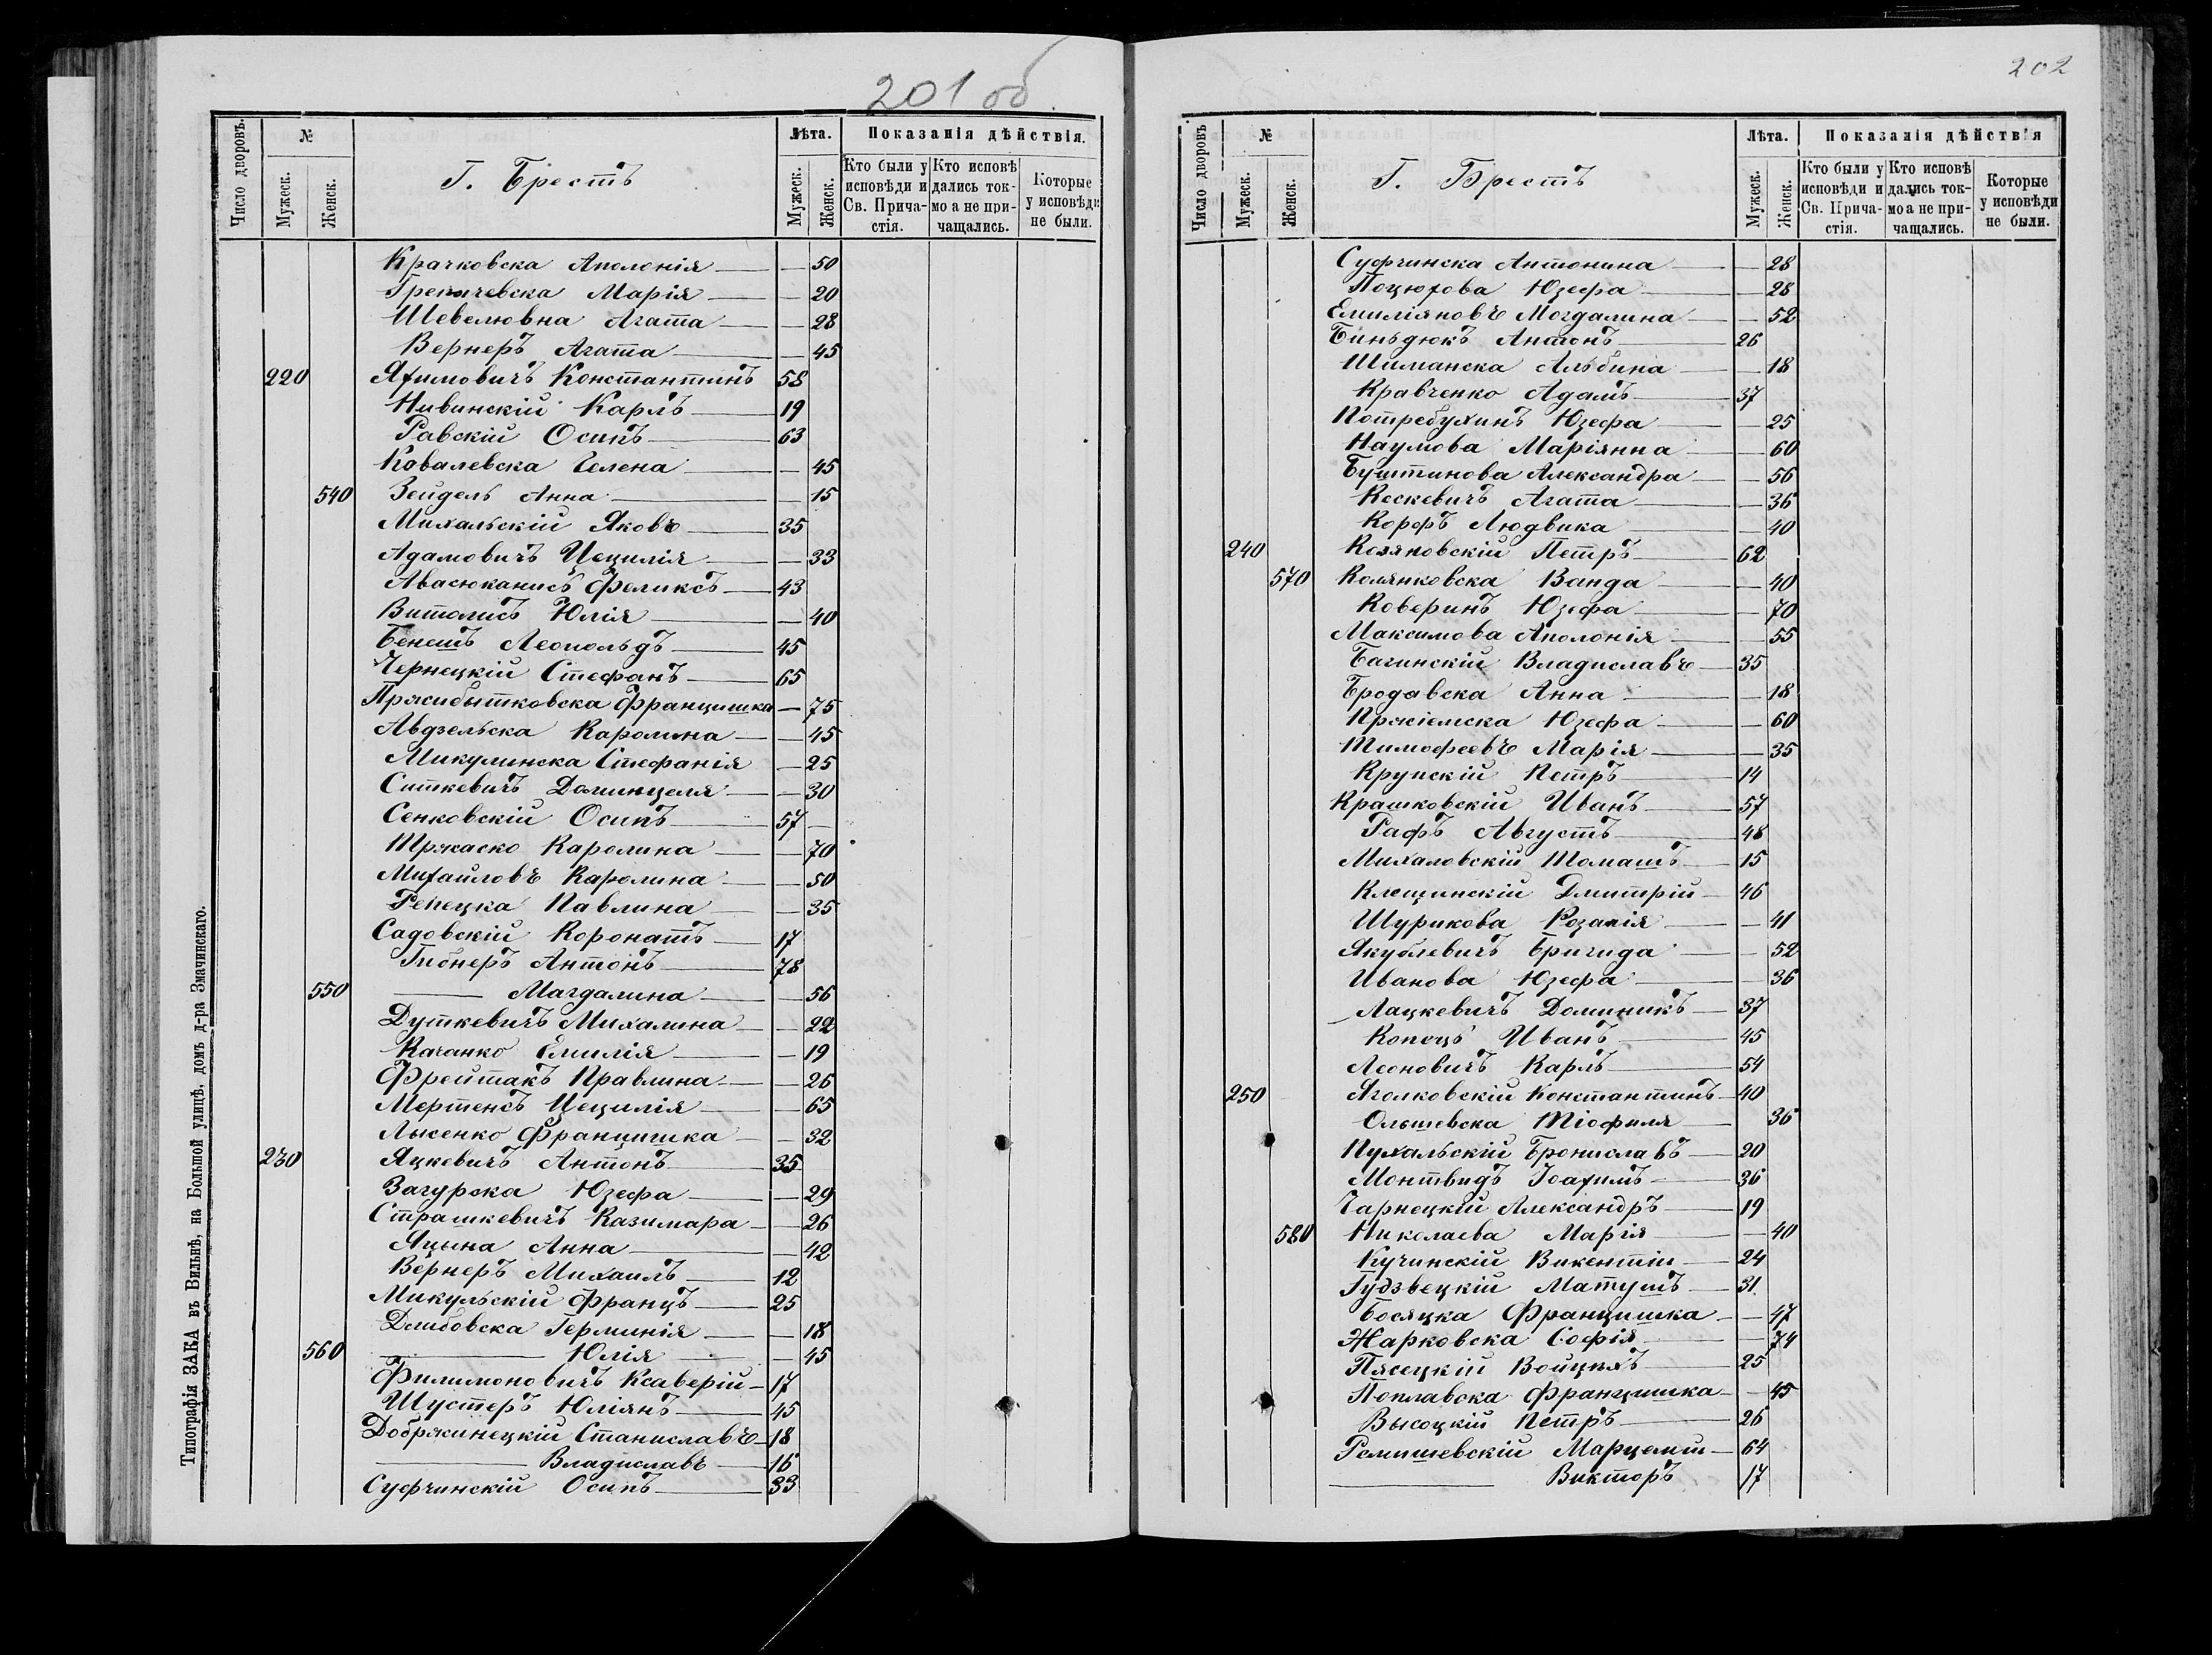 201 об
Число дворовъ.
№
Мужеск.
Женск.
Г. Брестъ
Лѣта.
Мужеск.
Женск.
Показанія дѣйствія.
Кто были у исповѣди и Св. Прича-стія.
Кто исповѣ дались ток-мо а не при-чащались.
Которые у исповѣди не были.
Крачковска Аполонія — — 50
Марія — — 20
Шевелювна Агата — — 28
Вернеръ Агата — — 45
220 Яхимовичъ Константинъ 58
Нивинскій Карлъ — 19
Равскій Осипъ — 63
Ковалевска Гелена — — 45
540 Зейдель Анна — — 15
Михальскій Яковъ — 35
Адамовичъ Цецилія — — 33
Авасюканисъ Феликсъ — 43
Витолисъ Юлія — — 40
Бенешъ Леопольдъ — 45
Чернецкій Стефанъ — 65
Пржибытковска Францишка — 75
Авдзельска Каролина — — 45
Микулинска Стефанія — 25
Ситкевичъ Доминцеля — — 30
Сенковскій Осипъ — 57 —
Тржаско Каролина — — 70
Михайловъ Каролина — — 50
Репецка Павлина — — 35
Садовскій Коронатъ — 17
Гибнеръ Антонъ — 78
550 — Магдалина — — 56
Дуткевичъ Михалина — — 22
Качанко Емилія — — 19
Фрейтакъ Правлина — — 26
Мертенсъ Цецилія — — 65
Лысенко Францишка — — 32
230 Яцкевичъ Антонъ — 35
Загурска Юзефа — — 29
Страшкевичъ Казимара — — 26
Яцына Анна — — 42
Вернеръ Михаилъ — 12
Микульскій Францъ — 25
Длибовска Герминія — — 18
560 — Юлія — — 45
Филимоновичъ Ксаверій — 17
Шустеръ Юліянъ — 45
Добржинецкій Станиславъ — 18
— Владиславъ — 16
Суфчинскій Осипъ — 33
Типографія ЗАКА въ Вильнѣ, на Большой улицѣ, домъ д-ра Змачинскаго.
202
Число дворовъ
№
Мужеск.
Женск.
Г. Брестъ
Лѣта.
Мужеск.
Женск.
Показанія дѣйствія
Кто были у исповѣди и Св. Прича-стія.
Кто исповѣ дались ток-мо а не при-чащались.
Которые у исповѣди не были.
Суфчинска Антонина — — 28
Поцюхова Юзефа — — 28
Емиліяновъ Могдалина — — 52
Биньдюкъ Антонъ — 26
Шиманска Альбина — — 18
Кравченко Адамъ — 37
Потребухинъ Юзефа — 25
Наумова Маріянна — 60
Буштинова Александра — — 56
Кескевичъ Агата — — 36
Корфъ Людвика — — 40
240 Козяновскій Петръ — 62
570 Колянковска Ванда — — 40
Коверинъ Юзефа — — 70
Максимова Аполонія — 55
Багинскій Владиславъ — 35
Бродавска Анна — — 18
Пржіемска Юзефа — — 60
Тимофеевъ Марія — — 35
Крупскій Петръ — 14
Крашковскій Иванъ — 57
Рафъ Августъ — 48
Михаловскій Томашъ — 15
Клещинскій Дмитрій — 46
Шурикова Розалія — — 41
Якублевичъ Бригида — — 52
Иванова Юзефа — — 36
Лацкевичъ Доминикъ — 37
Копецъ Иванъ — 45
Леоновичъ Карлъ — 54
250 Яголковскій Константинъ — 40
Ольшевска Тіофиля — 36
Пухальскій Брониславъ — 20
Монтвидъ Іоахимъ — 36
Чарнецкій Александръ — 19
580 Николаева Марія — — 40
Кучинскій Викентій — 24
Гудзвецкій Матушъ — 31
Босяцка Францишка — — 47
Жарковска Софія — — 74
Пясецкій Войцѣхъ — 25
Поплавска Францишка — — 45
Высоцкій Петръ — 26
Ремишевскій Марцелій — 64
— Викторъ — 17